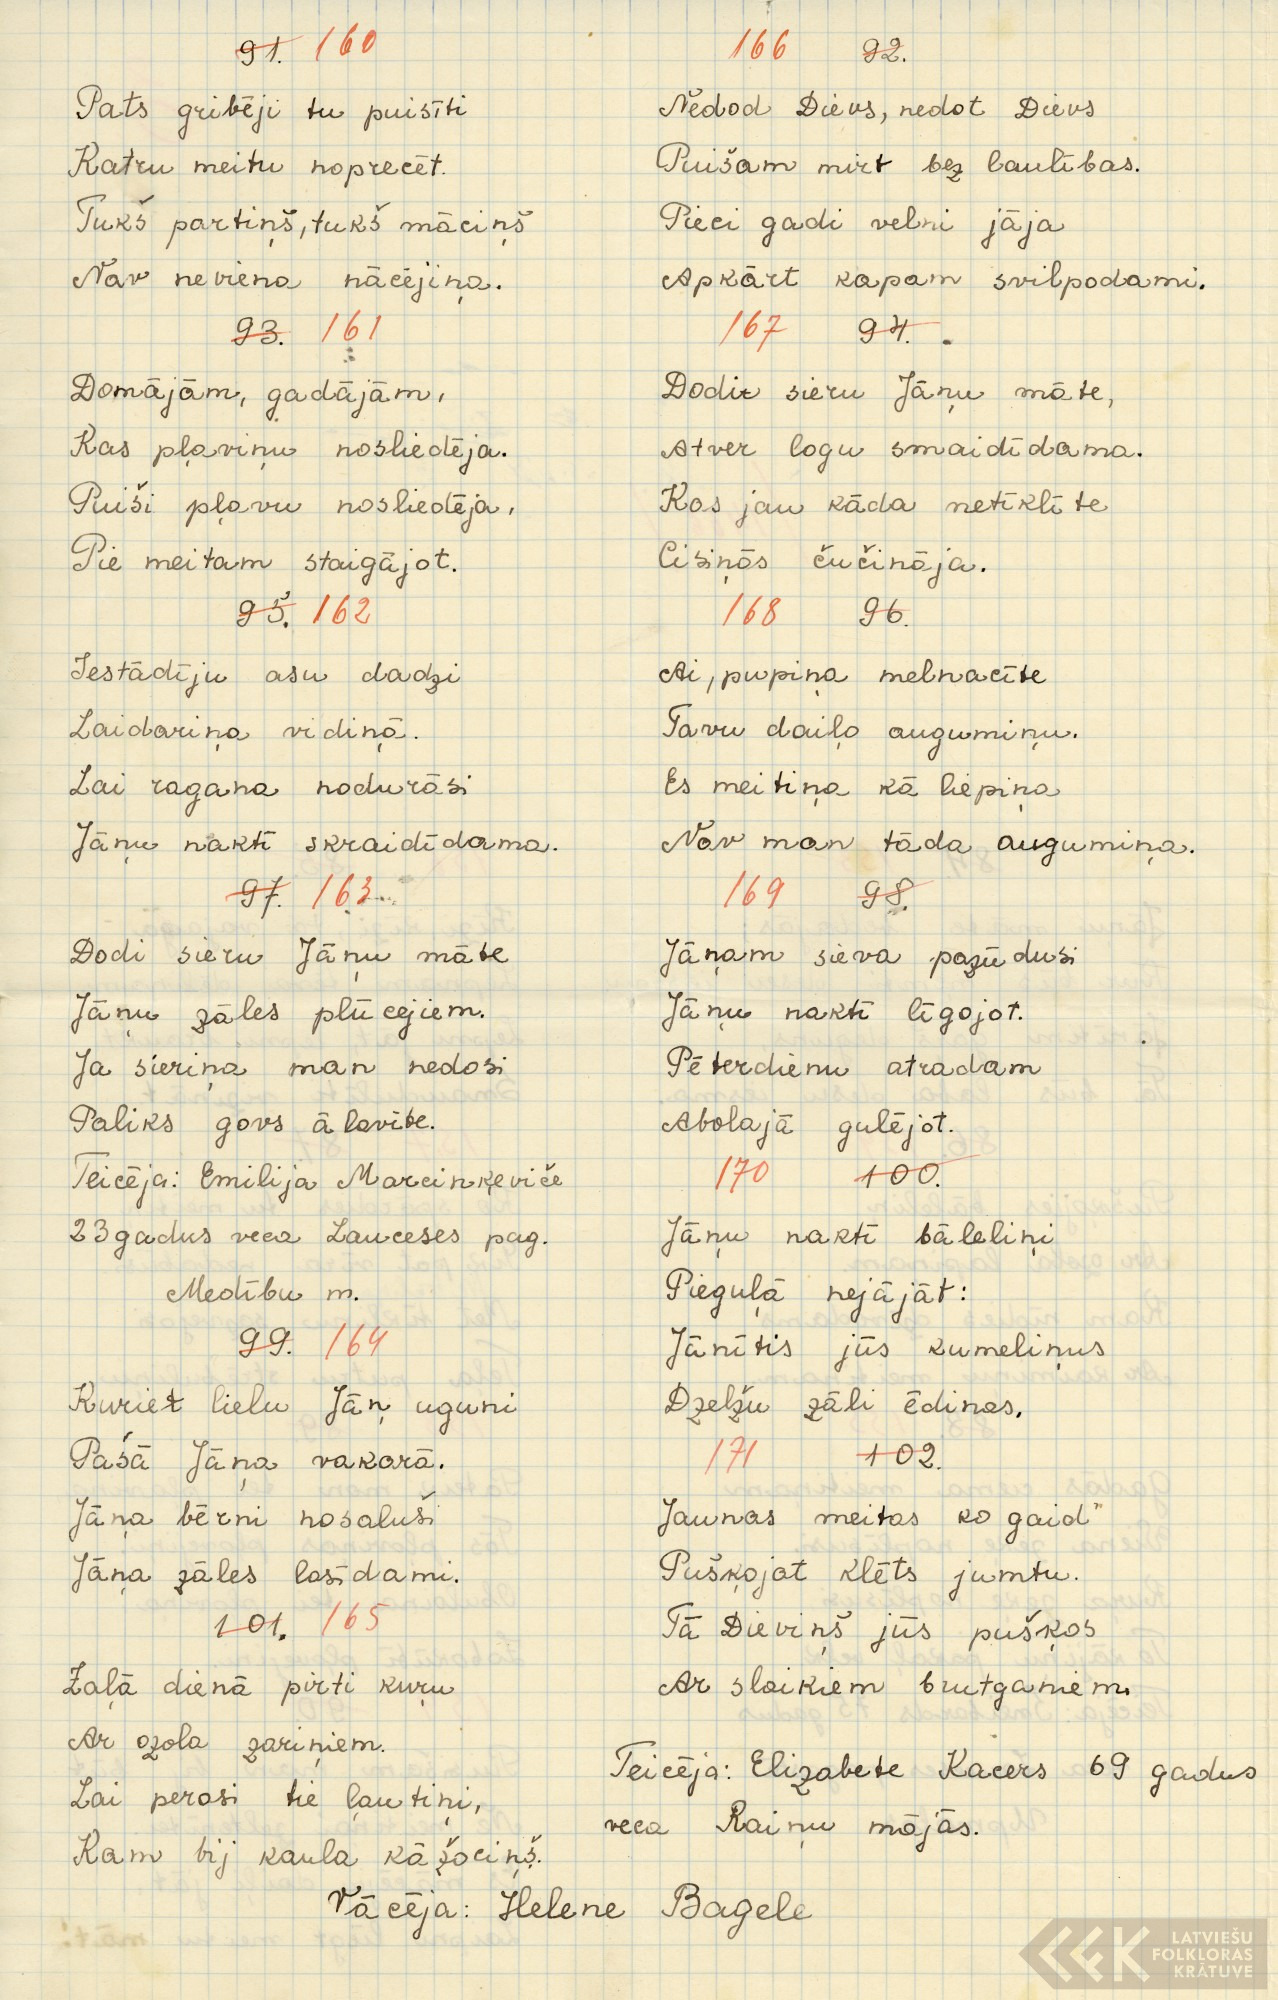 91. 160
Pats gribēji tu puisīti
Katru meitu noprecēt.
Tukš partiņš, tukš māciņš
Nav neviena nācējiņa.
93. 161
Domājām, gadājām,
Kas pļaviņu nosliedēja.
Puiši pļavu nosliedēja,
Pie meitam staigājot.
95. 162
Iestādīju asu dadzi
Laidariņa vidiņā.
Lai ragana nodurāsi
Jāņu naktī skraidīdama.
97. 163
Dodi sieru Jāņu māte
Jāņu zāles plūcejiem.
Ja sieriņa man nedosi
Paliks govs ālavīte.
Teicēja: Emilija Marcinķeviče
23 gadus veca Lauceses pag.
Medību m.
99. 164
Kuriet lielu Jāņ uguni
Pašā Jāņa vakarā.
Jāņa bērni nosaluši
Jāņa zāles lasīdami.
101. 165
Zaļā dienā pirti kuŗu
Ar ozola zariņiem.
Lai perasi tie ļautiņi,
Kam bij kaula kažociņš.
166 92.
Nedod Dievs, nedot Dievs
Puišam mirt bez laulības.
Pieci gadi velni jāja
Apkārt kapam svilpodami.
167 94.
Dodit sieru Jāņu māte,
Atver logu smaidīdama.
Kas jau kāda netiklīte
Cisiņās čučināja.
168 96.
Ai, pupiņa melnacīte
Tavu daiļo augumiņu.
Es meitiņa kā liepiņa
Nav man tāda augumiņa.
169 98.
Jāņam sieva pazūdusi
Jāņu naktī līgojot.
Pēterdienu atradam
Abolajā gulējot.
170 100.
Jāņu naktī bāleliņi
Pieguļā nejājāt:
Jānītis jūs kumeliņus
Dzelžu zāli ēdinas.
171 102.
Jaunas meitas ko gaid"
Puškojat klēts jumtu.
Tā Dieviņš jūs puškos
Ar slaikiem brutganiem.
Teicēja: Elizabete Kacers 69 gadus
veca Raiņu mājās.
Vācēja: Helene Bagele
LATVIEŠU
FOLKLORAS
KRĀTUVE